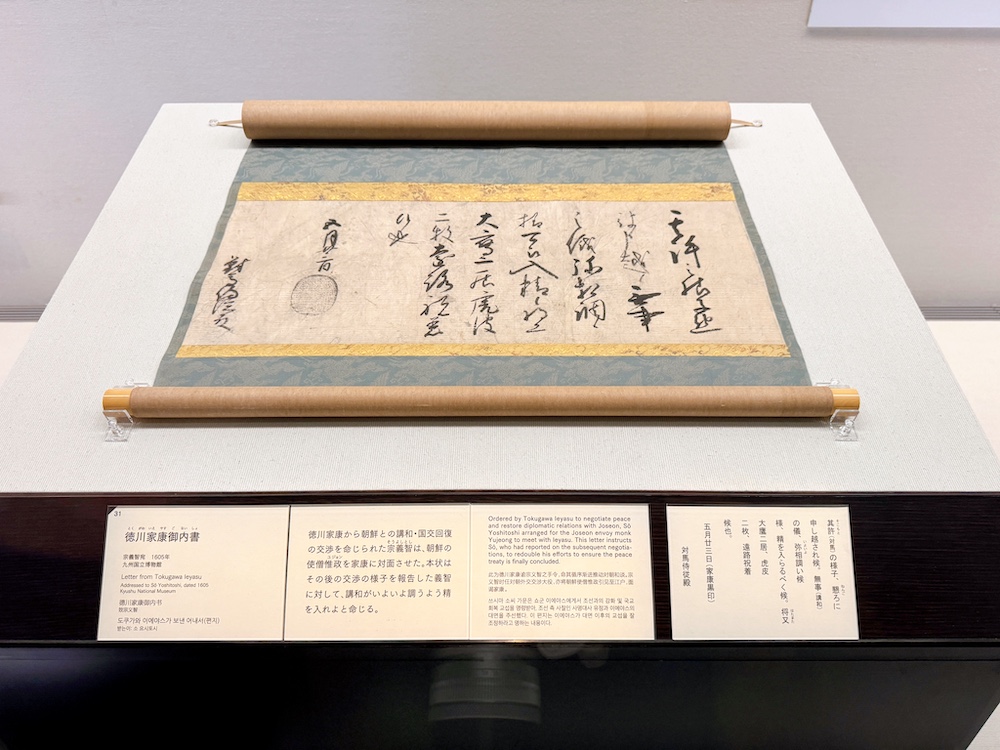 31
とくがわいえやすごないしょ
徳川家康御内書
宗義智宛 1605年
九州国立博物館
Letter from Tokugawa Ieyasu
Addressed to Sō Yoshitoshi, dated 1605
Kyushu National Museum
德川家康御内书
도쿠가와 이에야스가 보낸 어내서(편지)
받는이: 소 요시토시
徳川家康から朝鮮との講和・国交回復
そうよしとし
の交渉を命じられた宗義智は、朝鮮の
使僧惟政を家康に対面させた。本状は
その後の交渉の様子を報告した義智
に対して、講和がいよいよ調うよう精
を入れよと命じる。
Ordered by Tokugawa Ieyasu to negotiate peace
and restore diplomatic relations with Joseon, Sō
Yoshitoshi arranged for the Joseon envoy monk
Yujeong to meet with Ieyasu. This letter instructs
Sō, who had reported on the subsequent negotia-
tions, to redouble his efforts to ensure the peace
treaty is finally concluded.
쓰시마 소씨 가문은 쇼군 이에야스에게서 조선과의 강화 및 국교
회복 교섭을 명령받아, 조선 측 사절인 사명대사 유정과 이에야스의
대면을 주선했다. 이 편지는 이에야스가 대면 이후의 교섭을 잘
조정하라고 명하는 내용이다.
其許(対馬)の様子、懇ろに
申し越され候。無事(講和)
の儀、弥相調い候
様、精を入らるべく候。将又
大鷹二居、虎皮
二枚、遠路祝着
候也。
五月廿三日(家康黒印)
対馬侍従殿